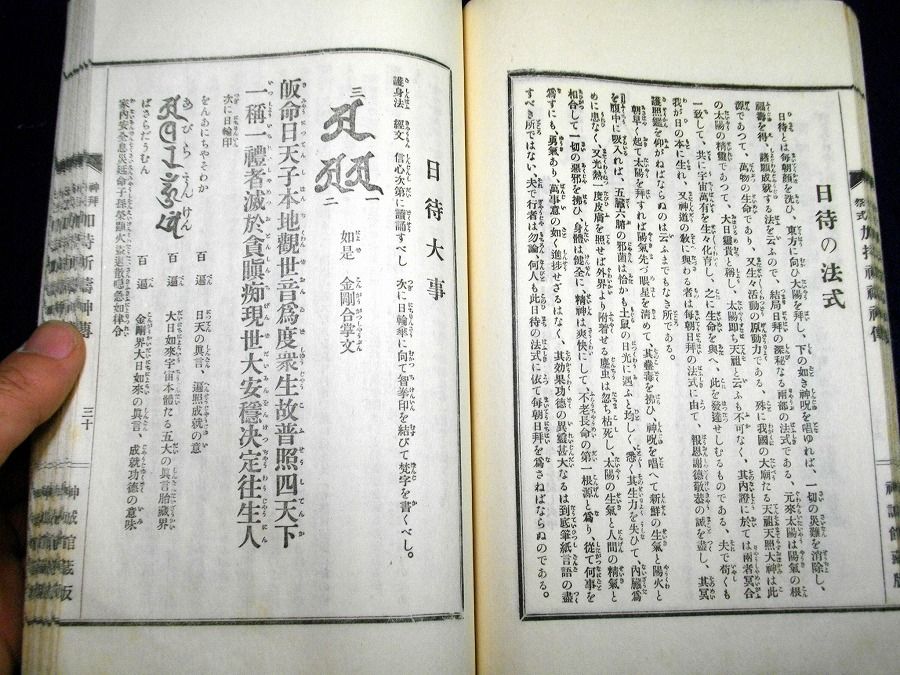 日待の法式
日待とは每朝顔を洗ひ、東方に向ひ太陽を拜し、下の如き神呪を唱ゆれば、一切の災難を消除し、
福壽を得、諸願成就する法を云ふので、結局日拜の深秘なる兩部の法式である、元來太陽は陽氣の根
源であつて、萬物の生命であり、又生々活動の原動力である、殊に我國の大廟たる天祖天照大神は此
の太陽の精靈であつて、大日靈貴と稱し、太陽即ち天祖と云ふも不可なく、其內證に於ては兩者冥合
一致して、共に宇宙萬有を生々化育し、之に生命を與へ、此を發達せしむるものである、夫で苟くも
我が日の本に生れ、又神道の敎に與わる者は每朝日拜の法式に由て、報恩謝德敬恭の誠を盡し、其冥
護照鑑を仰がねばならぬのは云ふまでもなき所である。
朝早く起て太陽を拜すれば陽氣先づ眼星を淸めて、其蠱毒を拂ひ、神呪を唱へて新鮮の生氣陽火と
を腹中に吸入れば、五臟六腑の邪菌は恰かも土鼠の日光に遇ふと均しく、悉く其生力を失ひて、內臟爲
めに患なく、又光熱一度皮膚を照せば外界より附着せる塵虫は忽ち枯死し、太陽の生氣と人間の精氣と
相合して一切の惡邪を拂ひ、身體は健全に、精神は爽快にして、不老長命の第一根源と爲り、從て何事を
爲すにも、勇氣あり、萬事意の如く進捗せざるはなく、其効果功德の異靈甚大なるは到底筆紙言語の盡
すべき所ではない、夫で行者は勿論、何人も此日待の法式に依て每朝日拜を爲さねばならぬのである。
日待大事
護身法 經文 信心次第に讀誦すべし 次に日輪に向て智拳印を結びて梵字を書くべし。
一
二
三
如是 金剛合掌文
皈命日天子本地觀世音爲度衆生故普照四天下
一稱一禮者滅於貪瞋痴現世大安穩決定往生人
次に日輪印
をんあにちやそわか 百遍 日天の眞言、遍照成就の意
あびらうんけん 百遍 大日如來宇宙本體たる五大の眞言胎藏界
ばさらだうむん 百遍 金剛界大日如來の眞言、成就功德の意味
家內安全息災延命子孫榮難火盜速散唵急如律令
三十